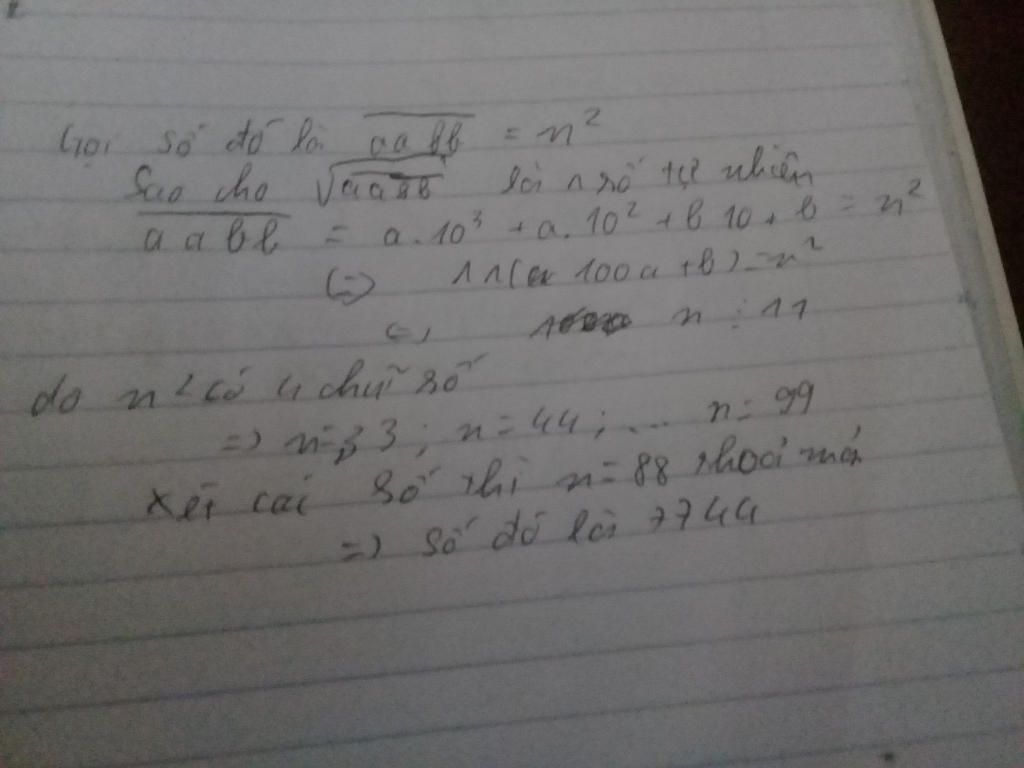 Gọi số đó là aabb = n²
Sao cho √aabb là 1 số tự nhiên
aabb = a.10³ + a.10² + b 10 + b = n²
(=) 11(100a+b) = n²
=) n ⋮ 11
do n² có 4 chữ số
=) n=33; n=44; ... n=99
xét các số thì n=88 thoả mãn
=) số đó là 7744